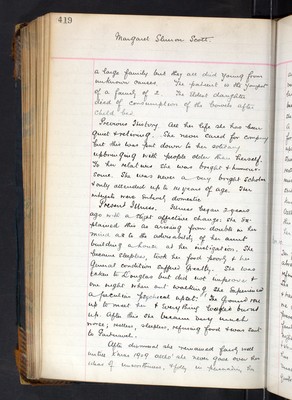 419
Margaret Stimson Scott
a large family but they all died young from
unknown causes. The patient is the youngest
of a family of 2. The eldest daughter
died of consumption of the bowels after
child bed.
Previous History All her life she has been
quiet & retiring. She never cared for company
but this was put down to her solitary
upbringing with people older than herself.
To her relatives she was bright & humour-
some. She was never a very bright scholar
& only attended up to 14 years of age. Her
interests were entirely domestic.
Present Illness. Illness began 2 years
ago with a slight affective change: she ex-
plained this as arising from doubts in her
mind as to the advisability of her aunt
building a house at her instigation. She
became sleepless, took her food poorly & her
general condition suffered greatly. She was
taken to Douglas but did not improve &
one night when out walking she experienced
a peculiar "physical upset." The ground rose
up to meet her & everything burned
up. After this she became very much
worse, restless, sleepless, refusing food & was sent
to
After dismissal she remained fairly well
until 1929 altho' she never gave over her
ideas of unworthiness, & folly in persuading her